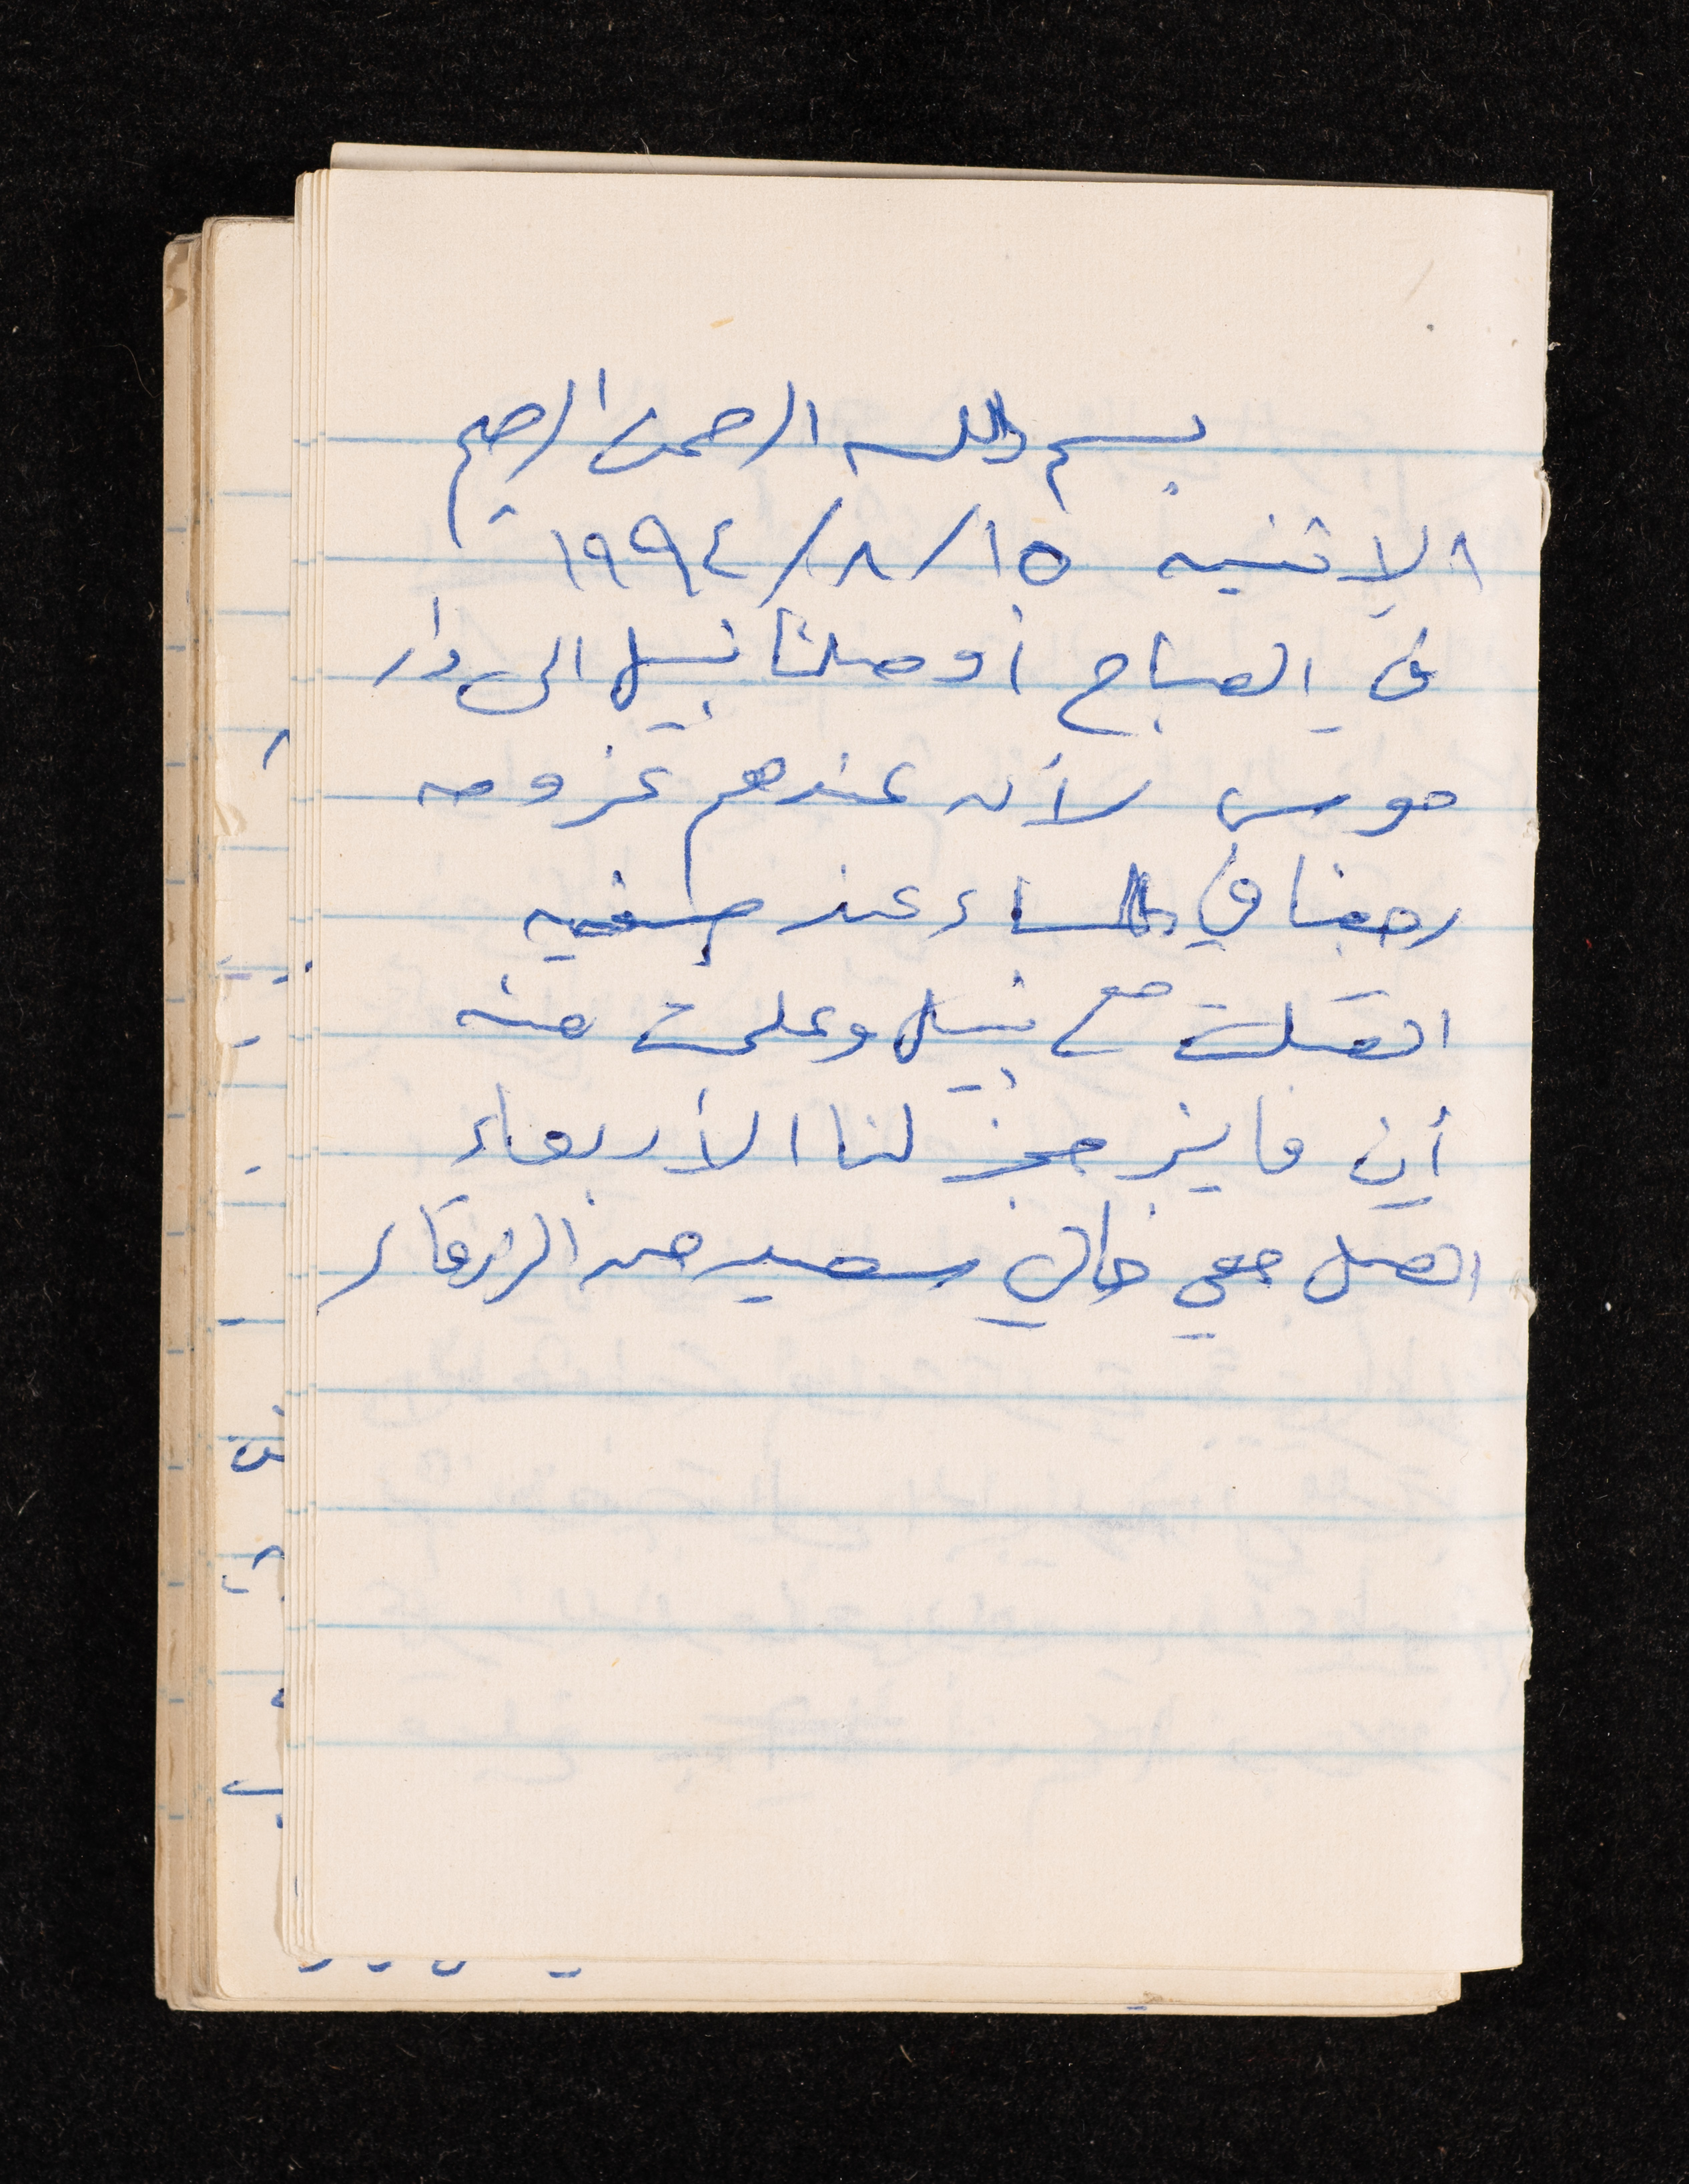 بسم الله الرحمن الرحيم
الاثنين ١٥/٨/١٩٩٤
في الصباح أوصلنا نبيل الى دار
موسى لأن عندهم عزومه
رجعنا في المساء عند صفيه
اتصلت مع نبيل وعلمت منه
أن فايز حجز لنا الأربعاء
اتصل معي خالي سعيد من الزرقاء